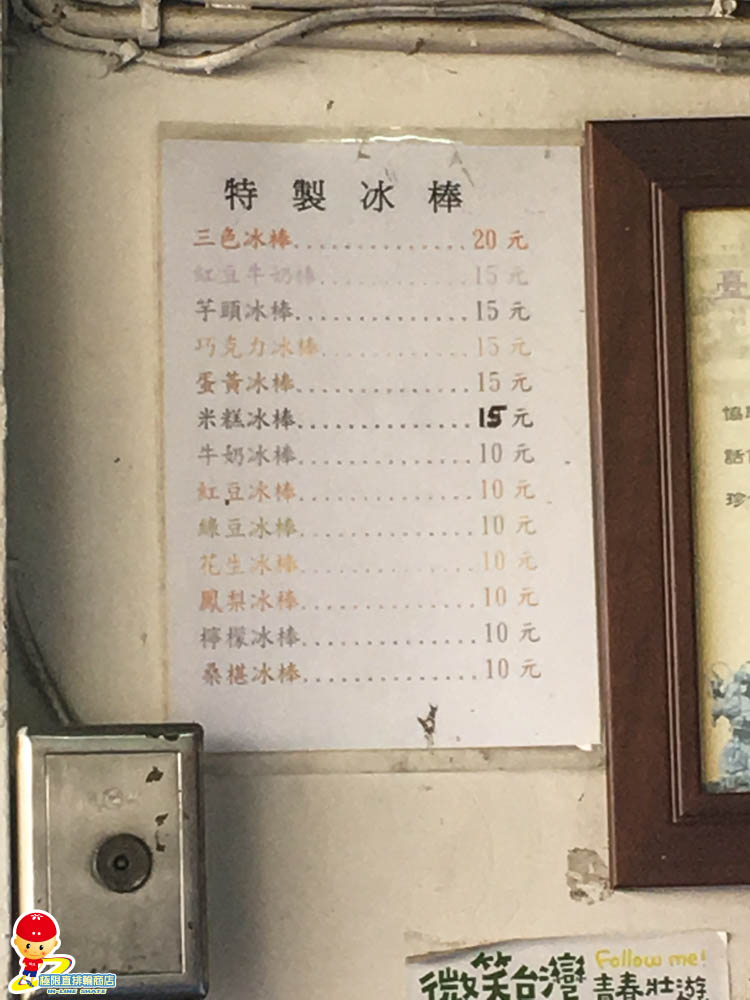 特製冰棒
三色冰棒....................20 元
紅豆牛奶棒................15 元
芋頭冰棒....................15 元
巧克力冰棒................15 元
蛋黃冰棒....................15 元
米糕冰棒....................15 元
牛奶冰棒....................10 元
紅豆冰棒....................10 元
綠豆冰棒....................10 元
花生冰棒....................10 元
鳳梨冰棒....................10 元
檸檬冰棒....................10 元
桑椹冰棒....................10 元
臺
協
話
珍
Follow me!
微笑台灣 青春壯遊
極限直排輪商店
IN-LINE SKATE